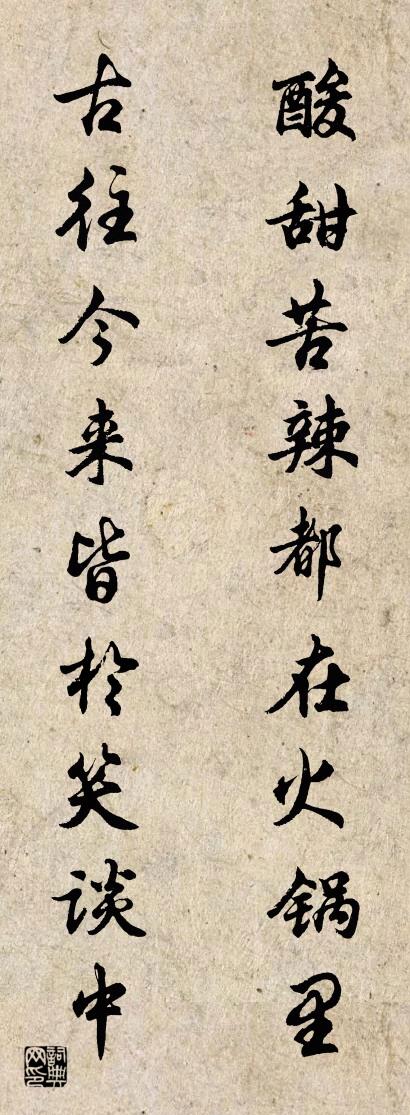 酸甜苦辣都在火锅里
古往今来皆於笑谈中
詞典网印